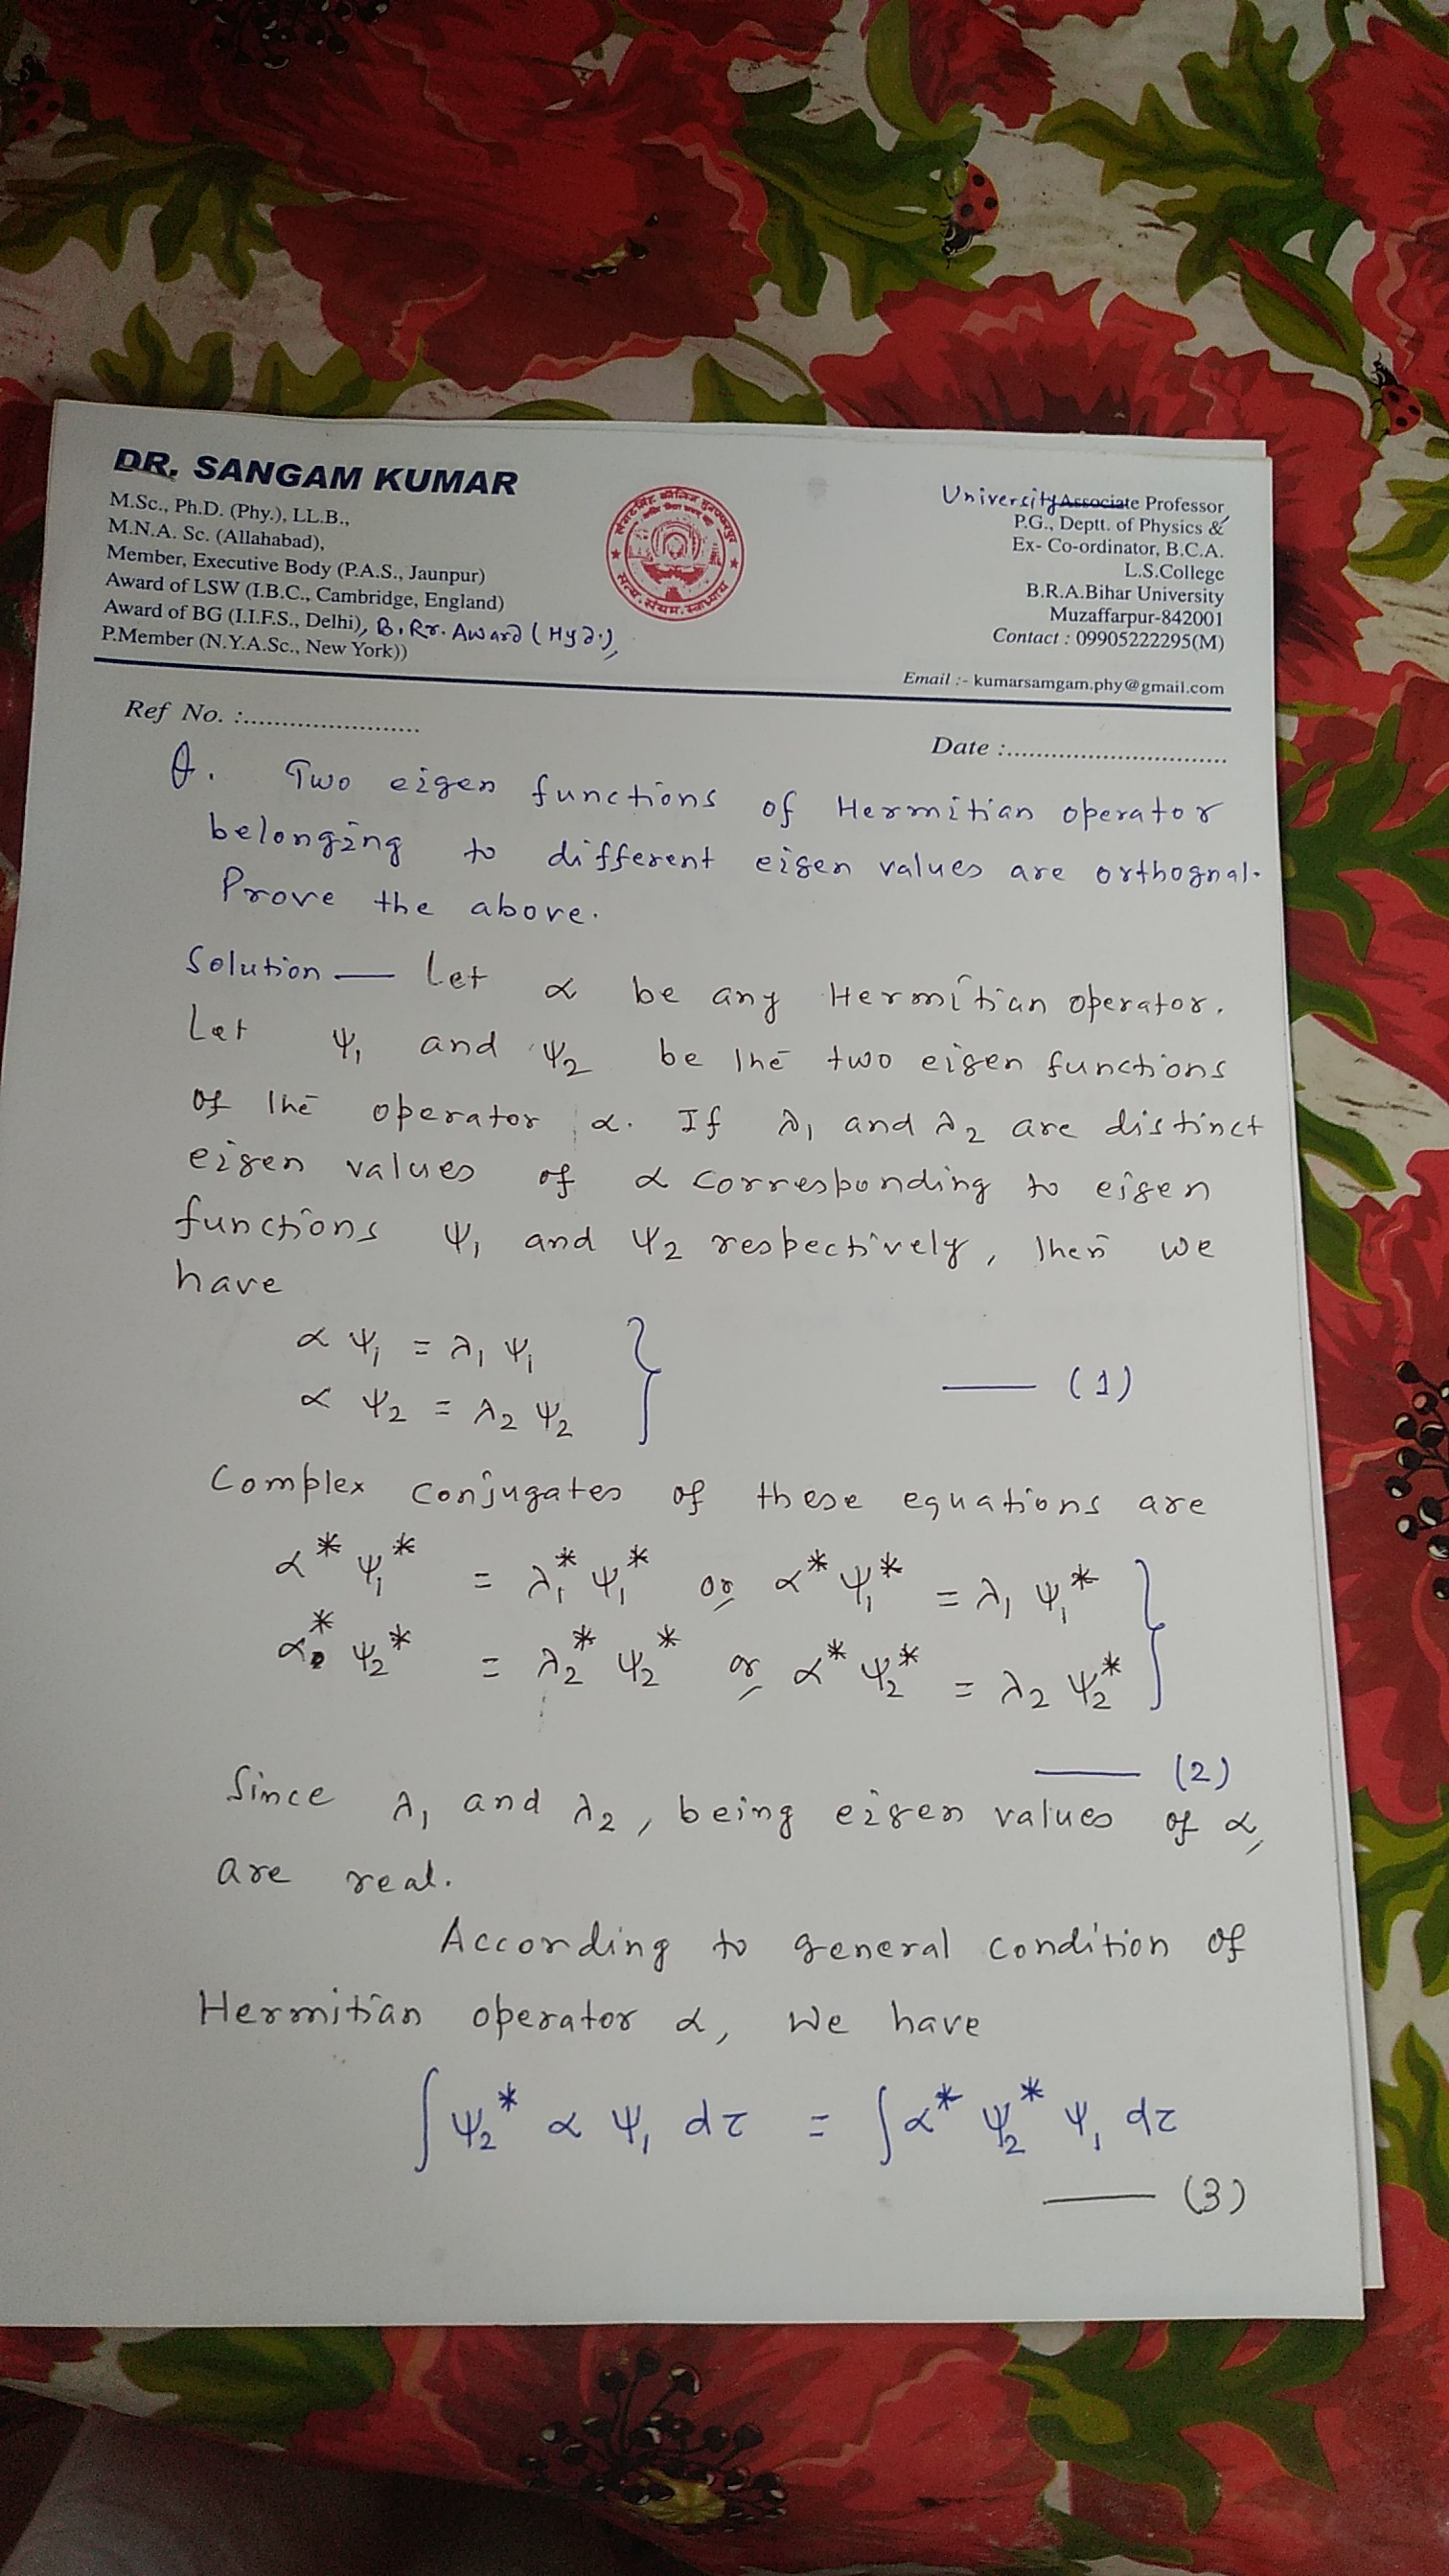 DR. SANGAM KUMAR
M.Sc., Ph.D. (Phy.), LL.B.,
M.N.A. Sc. (Allahabad),
Member, Executive Body (P.A.S., Jaunpur)
Award of LSW (I.B.C., Cambridge, England)
Award of BG (I.I.F.S., Delhi), B.Rr. Award (Hyd.),
P.Member (N.Y.A.Sc., New York))
University Associate Professor
P.G., Deptt. of Physics &
Ex- Co-ordinator, B.C.A.
L.S.College
B.R.A.Bihar University
Muzaffarpur-842001
Contact : 09905222295(M)
Email :- kumarsamgam.phy@gmail.com
Ref No. :.......................
Date :.............................
Q. Two eigen functions of Hermitian operator
belonging to different eigen values are orthognal.
Prove the above.
Solution — Let α be any Hermitian operator.
Let ψ₁ and ψ₂ be the two eigen functions
of the operator α. If λ₁ and λ₂ are distinct
eigen values of α corresponding to eigen
functions ψ₁ and ψ₂ respectively, then we
have
α ψ₁ = λ₁ ψ₁
α ψ₂ = λ₂ ψ₂ } — (1)
Complex conjugates of these equations are
α* ψ₁* = λ₁* ψ₁* or α* ψ₁* = λ₁ ψ₁*
α* ψ₂* = λ₂* ψ₂* or α* ψ₂* = λ₂ ψ₂* }
— (2)
Since λ₁ and λ₂, being eigen values of α,
are real.
According to general condition of
Hermitian operator α, we have
∫ ψ₂* α ψ₁ dτ = ∫ α* ψ₂* ψ₁ dτ
— (3)